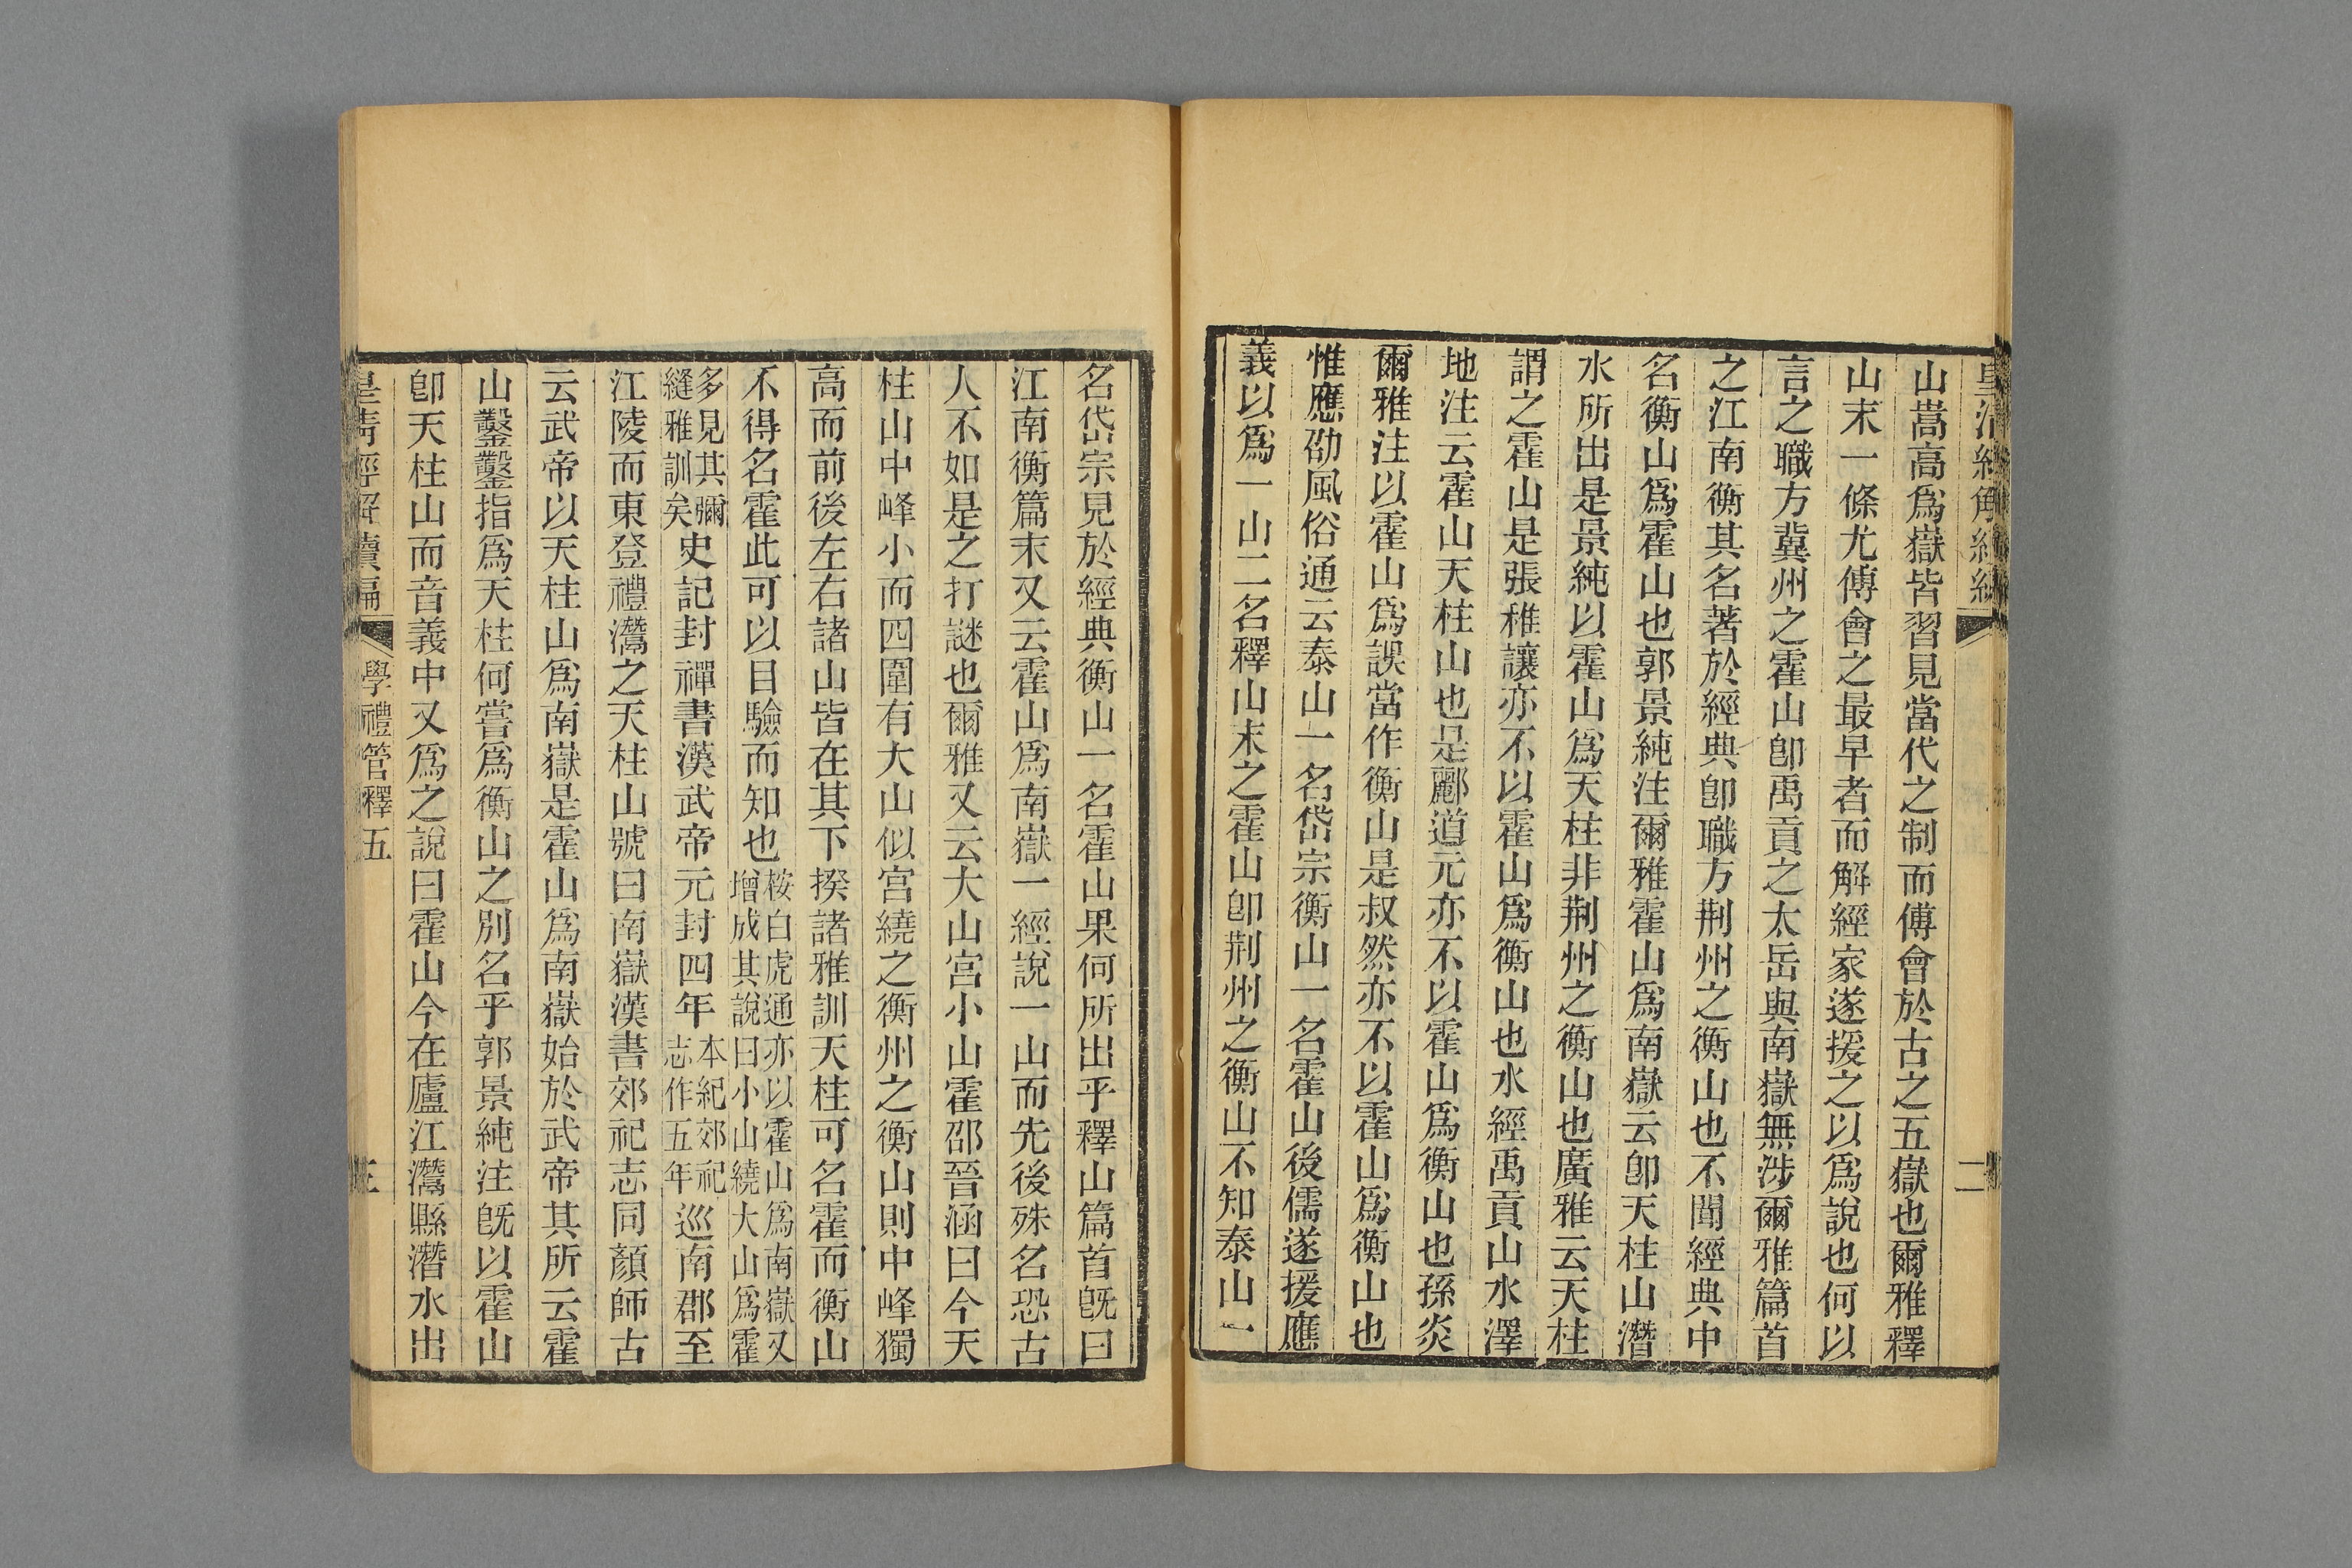 山嵩高爲嶽皆習見當代之制而傅會於古之五嶽也爾雅釋
山末一條尤傅會之最早者而解經家遂援之以爲說也何以
言之職方冀州之霍山卽禹貢之太岳與南嶽無涉爾雅篇首
之江南衡其名著於經典卽職方荆州之衡山也不聞經典中
名衡山爲霍山也郭景純注爾雅霍山爲南嶽云卽天柱山潛
水所出是景純以霍山爲天柱非荆州之衡山也廣雅云天柱
謂之霍山是張稚讓亦不以霍山爲衡山也水經禹貢山水澤
地注云霍山天柱山也是酈道元亦不以霍山爲衡山也孫炎
爾雅注以霍山爲誤當作衡山是叔然亦不以霍山爲衡山也
惟應劭風俗通云泰山一名岱宗衡山一名霍山後儒遂援應
義以爲一山二名釋山末之霍山卽荆州之衡山不知泰山一
二
名岱宗見於經典衡山一名霍山果何所出乎釋山篇首旣曰
江南衡篇末又云霍山爲南嶽一經說一山而先後殊名恐古
人不如是之打謎也爾雅又云大山宮小山霍邵晉涵曰今天
柱山中峰小而四圍有大山似宮繞之衡州之衡山則中峰獨
高而前後左右諸山皆在其下揆諸雅訓天柱可名霍而衡山
不得名霍此可以目驗而知也桉白虎通亦以霍山爲南嶽又增成其說曰小山繞大山爲霍
多見其彌縫雅訓矣史記封禪書漢武帝元封四年本紀郊祀志作五年巡南郡至
江陵而東登禮灊之天柱山號曰南嶽漢書郊祀志同顏師古
云武帝以天柱山爲南嶽是霍山爲南嶽始於武帝其所云霍
山鑿鑿指爲天柱何嘗爲衡山之別名乎郭景純注旣以霍山
卽天柱山而音義中又爲之說曰霍山今在廬江灊縣潛水出
皇清經解續編
學禮管釋五
三